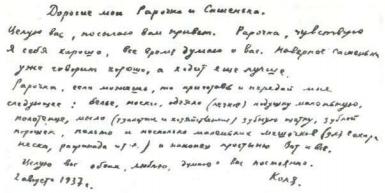 Дорогие мои Рарочка и Сашенька.
Целую вас, посылаю вам привет. Рарочка, чувствую
я себя хорошо, все время думаю о вас. Наверное Сашенька
уже говорит хорошо, а ходит еще лучше.
Рарочка, если можешь, то приготовь и передай мне
следующее: белье, носки, одеяло (легкое) подушку маленькую,
полотенце, мыло (туалетн и хозяйственн) зубную щетку, зубной
порошок, пальто и несколько маленьких мешочков (для сахара,
и т.д.) и наконец простыню Вот и все.
Целую вас обоих, люблю, думаю о вас постоянно.
2 августа 1937 г.